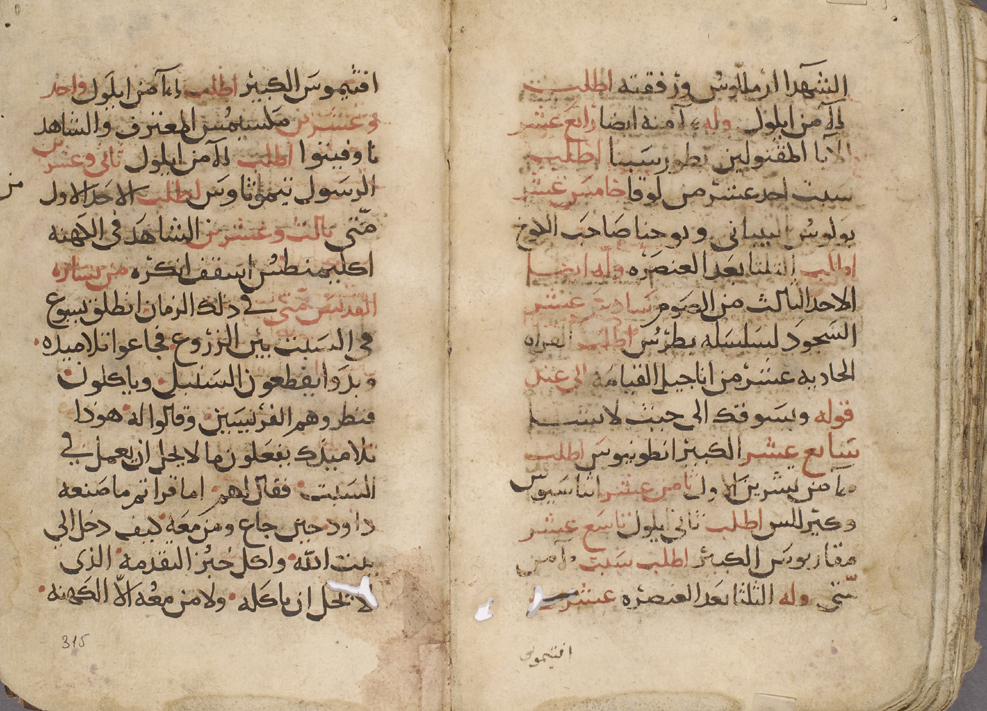 الشهدا ارملاوس ورفقته اطلب
من ايلول وله امنه ايضا رابع عشر
الابا المقتولين بطور سينا اطلبهم
سبت احد عشر من لوقا خامس عشر
بولوس البسياني ويوحنا صاحب الكوخ
اطلب الثلثا بعد العنصره وله ايضا
الاحد الثالث من الصوم سادس عشر
السجود لسلسله بطرس اطلب القراه
الحاديه عشر من اناجيل القيامه الى عند
قوله ويسوقك الى حيث لا تشا
سابع عشر الكبير انطونيوس اطلب
من تشرين الاول ثامن عشر اثناسيوس
وكيرللس اطلب ثاني ايلول تاسع عشر
مقاريوس الكبير اطلب سبت من
متى وله الثلثا بعد العنصره عشرين
افتيموس
افتيموس الكبير اطلب من ايلول واحد
وعشرين مكسيمس المعترف والشاهد
ناوفيتوا اطلب من ايلول ثاني وعشرين
الرسول تيموثاوس اطلب الاحد الاول من
متى ثالث وعشرين الشاهد في الكهنه
اكليمنطس اسقف انكره من بشاره
القديس متى في ذلك الزمان انطلق يسوع
في السبت بين الزروع فجاعوا تلاميذه
وبدوا يقطعون السنبل وياكلون
فنظروهم الفريسيين وقالوا له هوذا
تلاميذك يفعلون ما لا يحل ان يعمل في
السبت فقال لهم اما قراتم ما صنعه
داود حين جاع ومن معه كيف دخل الى
بيت الله واكل خبز التقدمة الذي
لا يحل ان ياكله ولا من معه الا الكهنه
315